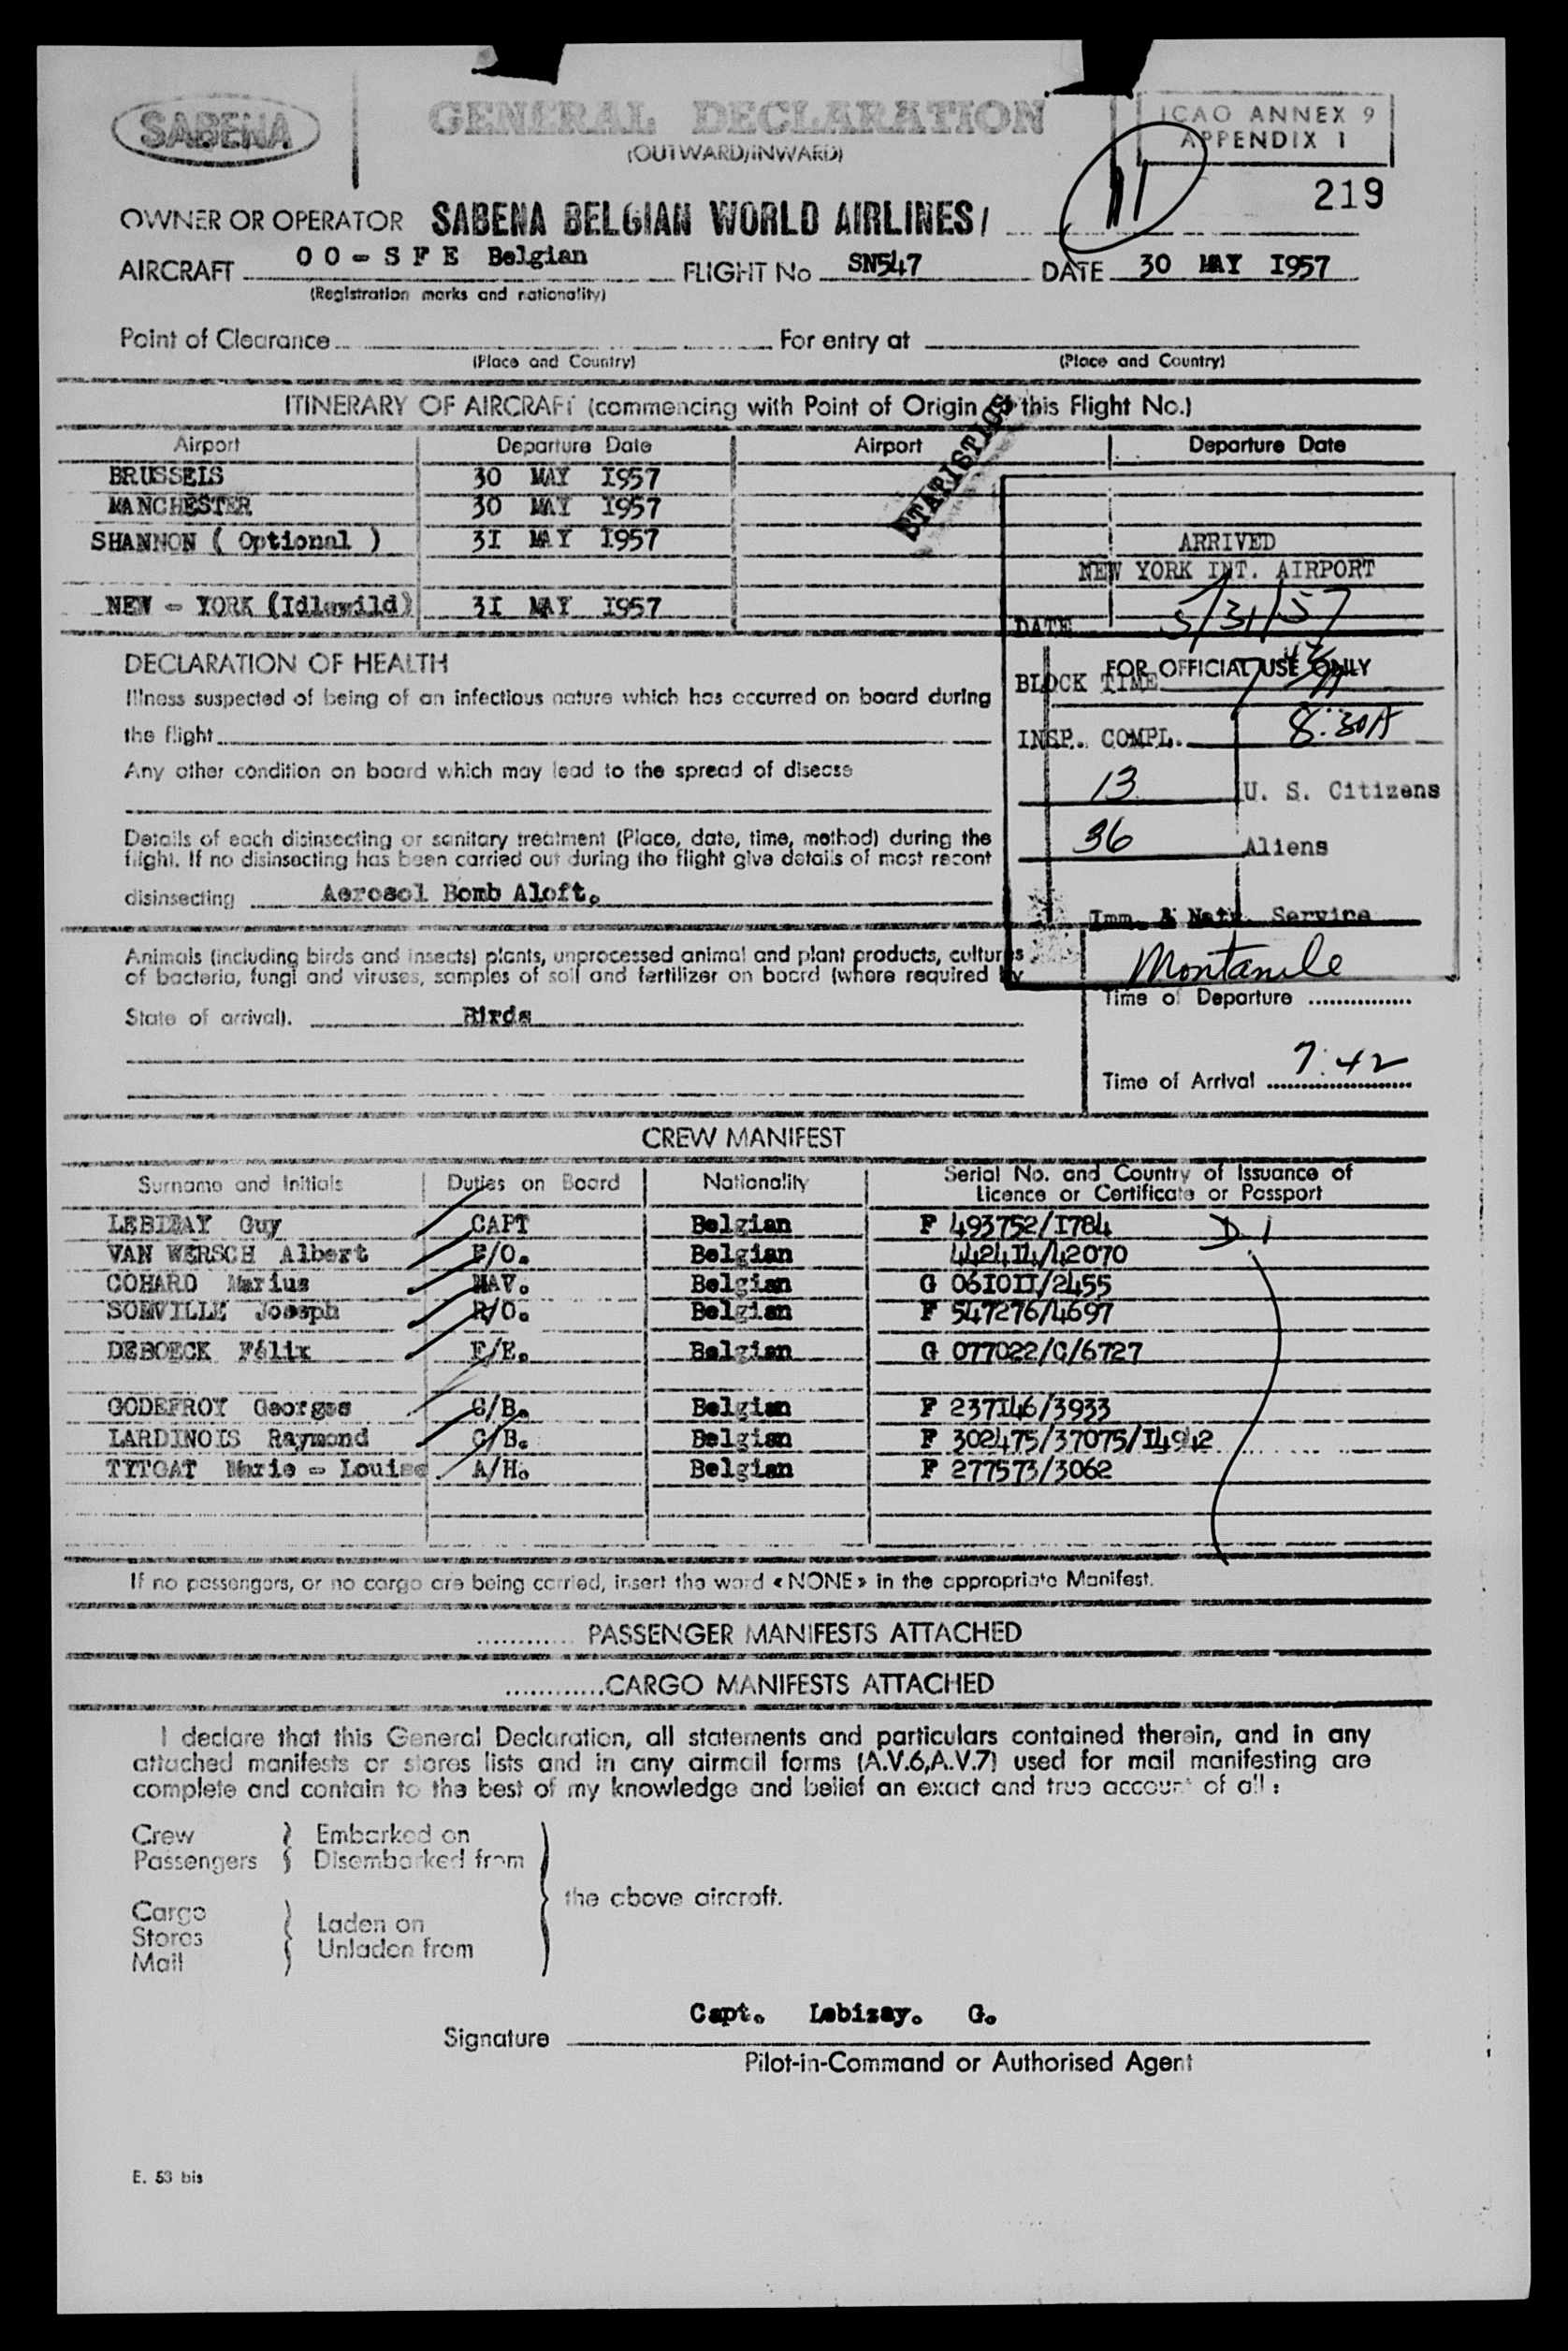 SABENA
GENERAL DECLARATION
(OUTWARD/INWARD)
ICAO ANNEX 9
APPENDIX 1
11
219
OWNER OR OPERATOR SABENA BELGIAN WORLD AIRLINES/
AIRCRAFT OO - S F E Belgian FLIGHT No SN547 DATE 30 MAY I957
(Registration marks and nationality)
Point of Clearance For entry at
(Place and Country) (Place and Country)
ITINERARY OF AIRCRAFT (commencing with Point of Origin this Flight No.)
STATISTICS
Airport Departure Date Airport Departure Date
BRUSSELS 30 MAY I957
MANCHESTER 30 MAY I957
SHANNON ( Optional ) 3I MAY I957
NEW - YORK (Idlewild) 3I MAY I957
ARRIVED
NEW YORK INT. AIRPORT
DATE 5/31/57
FOR OFFICIAL USE ONLY
BLOCK TIME
INSP. COMPL. 8:30A
13 U. S. Citizens
36 Aliens
Imm. & Natz. Service
Montanile
DECLARATION OF HEALTH
Illness suspected of being of an infectious nature which has occurred on board during
the flight
Any other condition on board which may lead to the spread of disease
Details of each disinsecting or sanitary treatment (Place, date, time, method) during the
flight. If no disinsecting has been carried out during the flight give details of most recent
disinsecting Aerosol Bomb Aloft.
Animals (including birds and insects) plants, unprocessed animal and plant products, cultures
of bacteria, fungi and viruses, samples of soil and fertilizer on board (where required by
State of arrival). Birds
Time of Departure
Time of Arrival 7:42
CREW MANIFEST
Surname and Initials Duties on Board Nationality Serial No. and Country of Issuance of
Licence or Certificate or Passport
LEBIZAY Guy CAPT Belgian F 493752/I784 D 1
VAN WERSCH Albert F/O. Belgian 4424I4/42070
COHARD Marius NAV. Belgian G 06I0II/2455
SOMVILLE Joseph R/O. Belgian F 547276/4697
DEBOECK Félix F/E. Belgian G 077022/C/6727
GODEFROY Georges C/B. Belgian F 237I46/3933
LARDINOIS Raymond C/B. Belgian F 302475/37075/I4942
TYTGAT Marie - Louise A/H. Belgian F 277573/3062
If no passengers, or no cargo are being carried, insert the word «NONE» in the appropriate Manifest.
............ PASSENGER MANIFESTS ATTACHED
............CARGO MANIFESTS ATTACHED
I declare that this General Declaration, all statements and particulars contained therein, and in any
attached manifests or stores lists and in any airmail forms (A.V.6,A.V.7) used for mail manifesting are
complete and contain to the best of my knowledge and belief an exact and true account of all :
Crew Embarked on
Passengers Disembarked from
the above aircraft.
Cargo
Stores Laden on
Mail Unladen from
Capt. Lebizay. G.
Signature
Pilot-in-Command or Authorised Agent
E. 53 bis